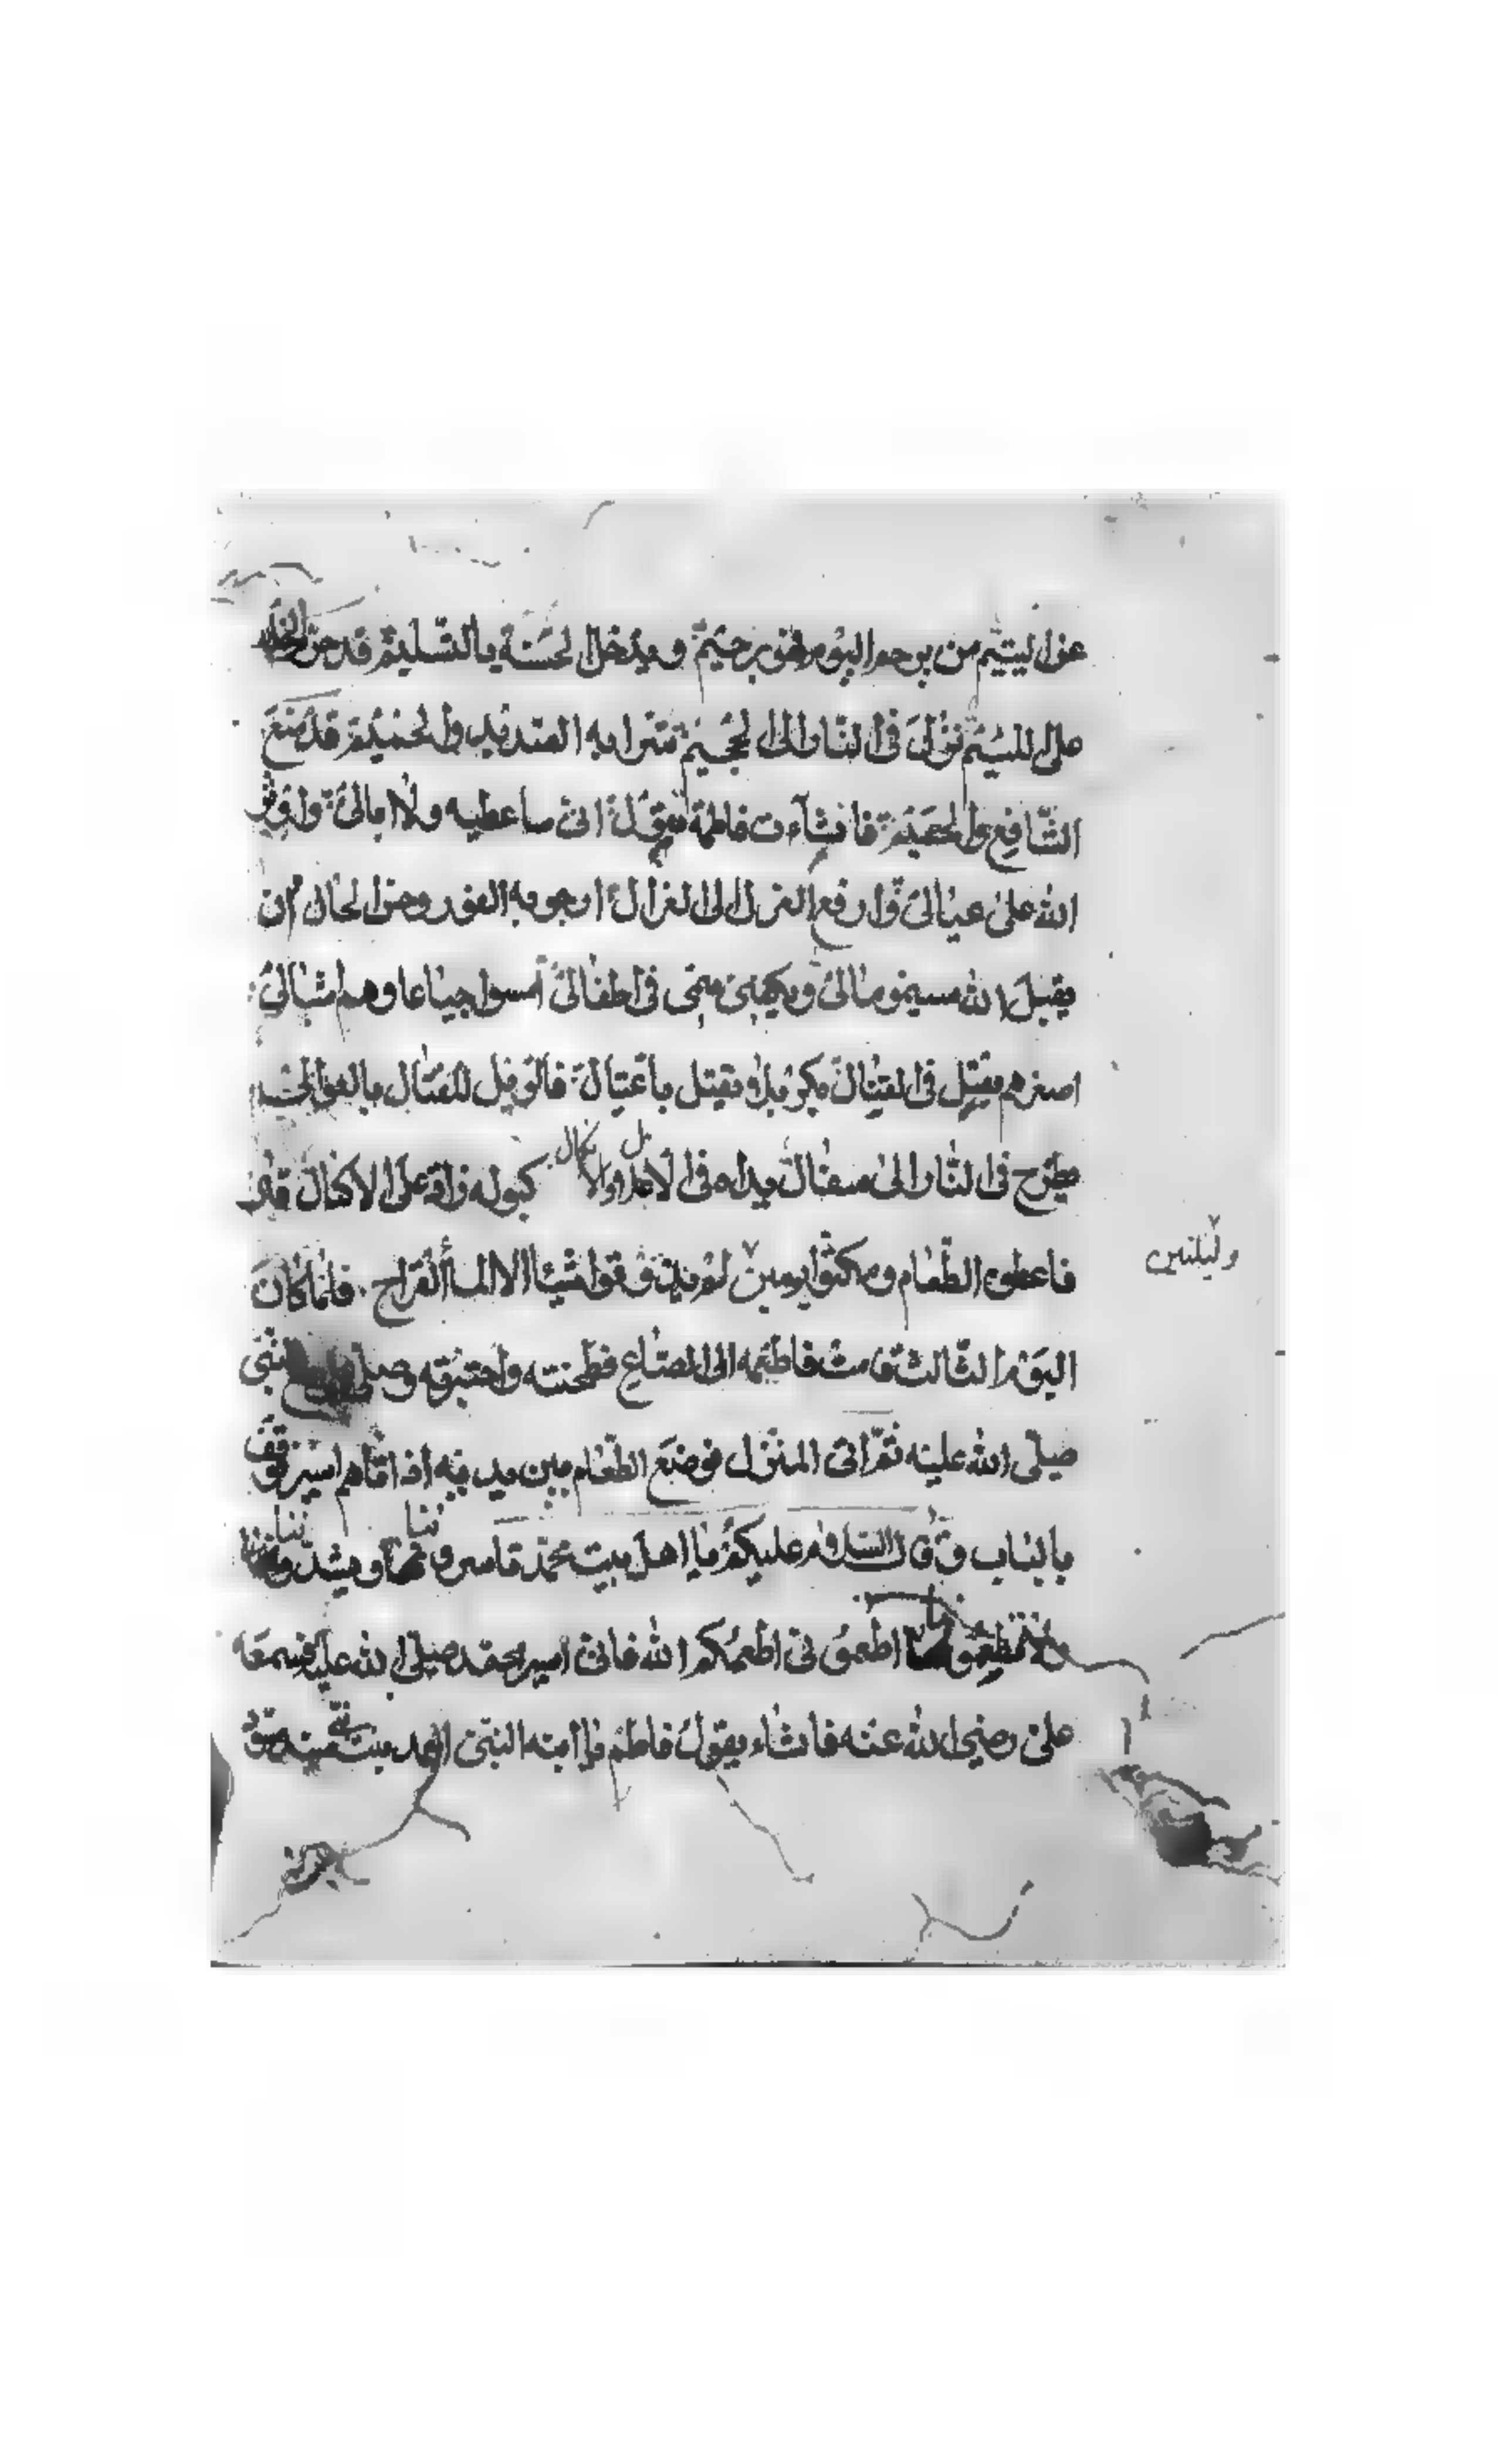 من يرحم اليوم فهو رحيم ويدخل الجنة بالتسليم قد حرم الخلد
على اللئيم نزل في النار الى الجحيم شرابه الصديد والحميم قد صنع
الشافع والحميم فانشأت فاطمة تقول اني ساعطيه ولا ابالي واوثر
الله على عيالي وارفع الغزل الى الغزال ارجو به الفوز وحق الحال ان
يقبل الله سينمو مالي ويكفيني همي في اطفالي امسوا جياعا وهم اشبالي
اصغرهم يقتل في القتال بكربلا يقتل باغتيال فالويل للقتال
يطرح في النار الى سفال يداه في الاغلال والانكال كبوله زادت على الاكبال
فاعطوه الطعام ومكثوا يومين وليلتين لم يذوقوا شيئا الا الماء القراح فلما كان
اليوم الثالث قامت فاطمة الى الصاع فطحنته واختبزته وصلى علي مع النبي
صلى الله عليه ثم اتى المنزل فوضع الطعام بين يديه اذ اتاهم اسير فوقف
بالباب وقال السلام عليكم يا اهل بيت محمد تاسروننا وتشدوننا
ولا تطعموننا اطعموني اطعمكم الله فاني اسير محمد صلى الله عليه فسمعه
علي رضي الله عنه فانشاء يقول فاطم يا ابنة النبي احمد بنت